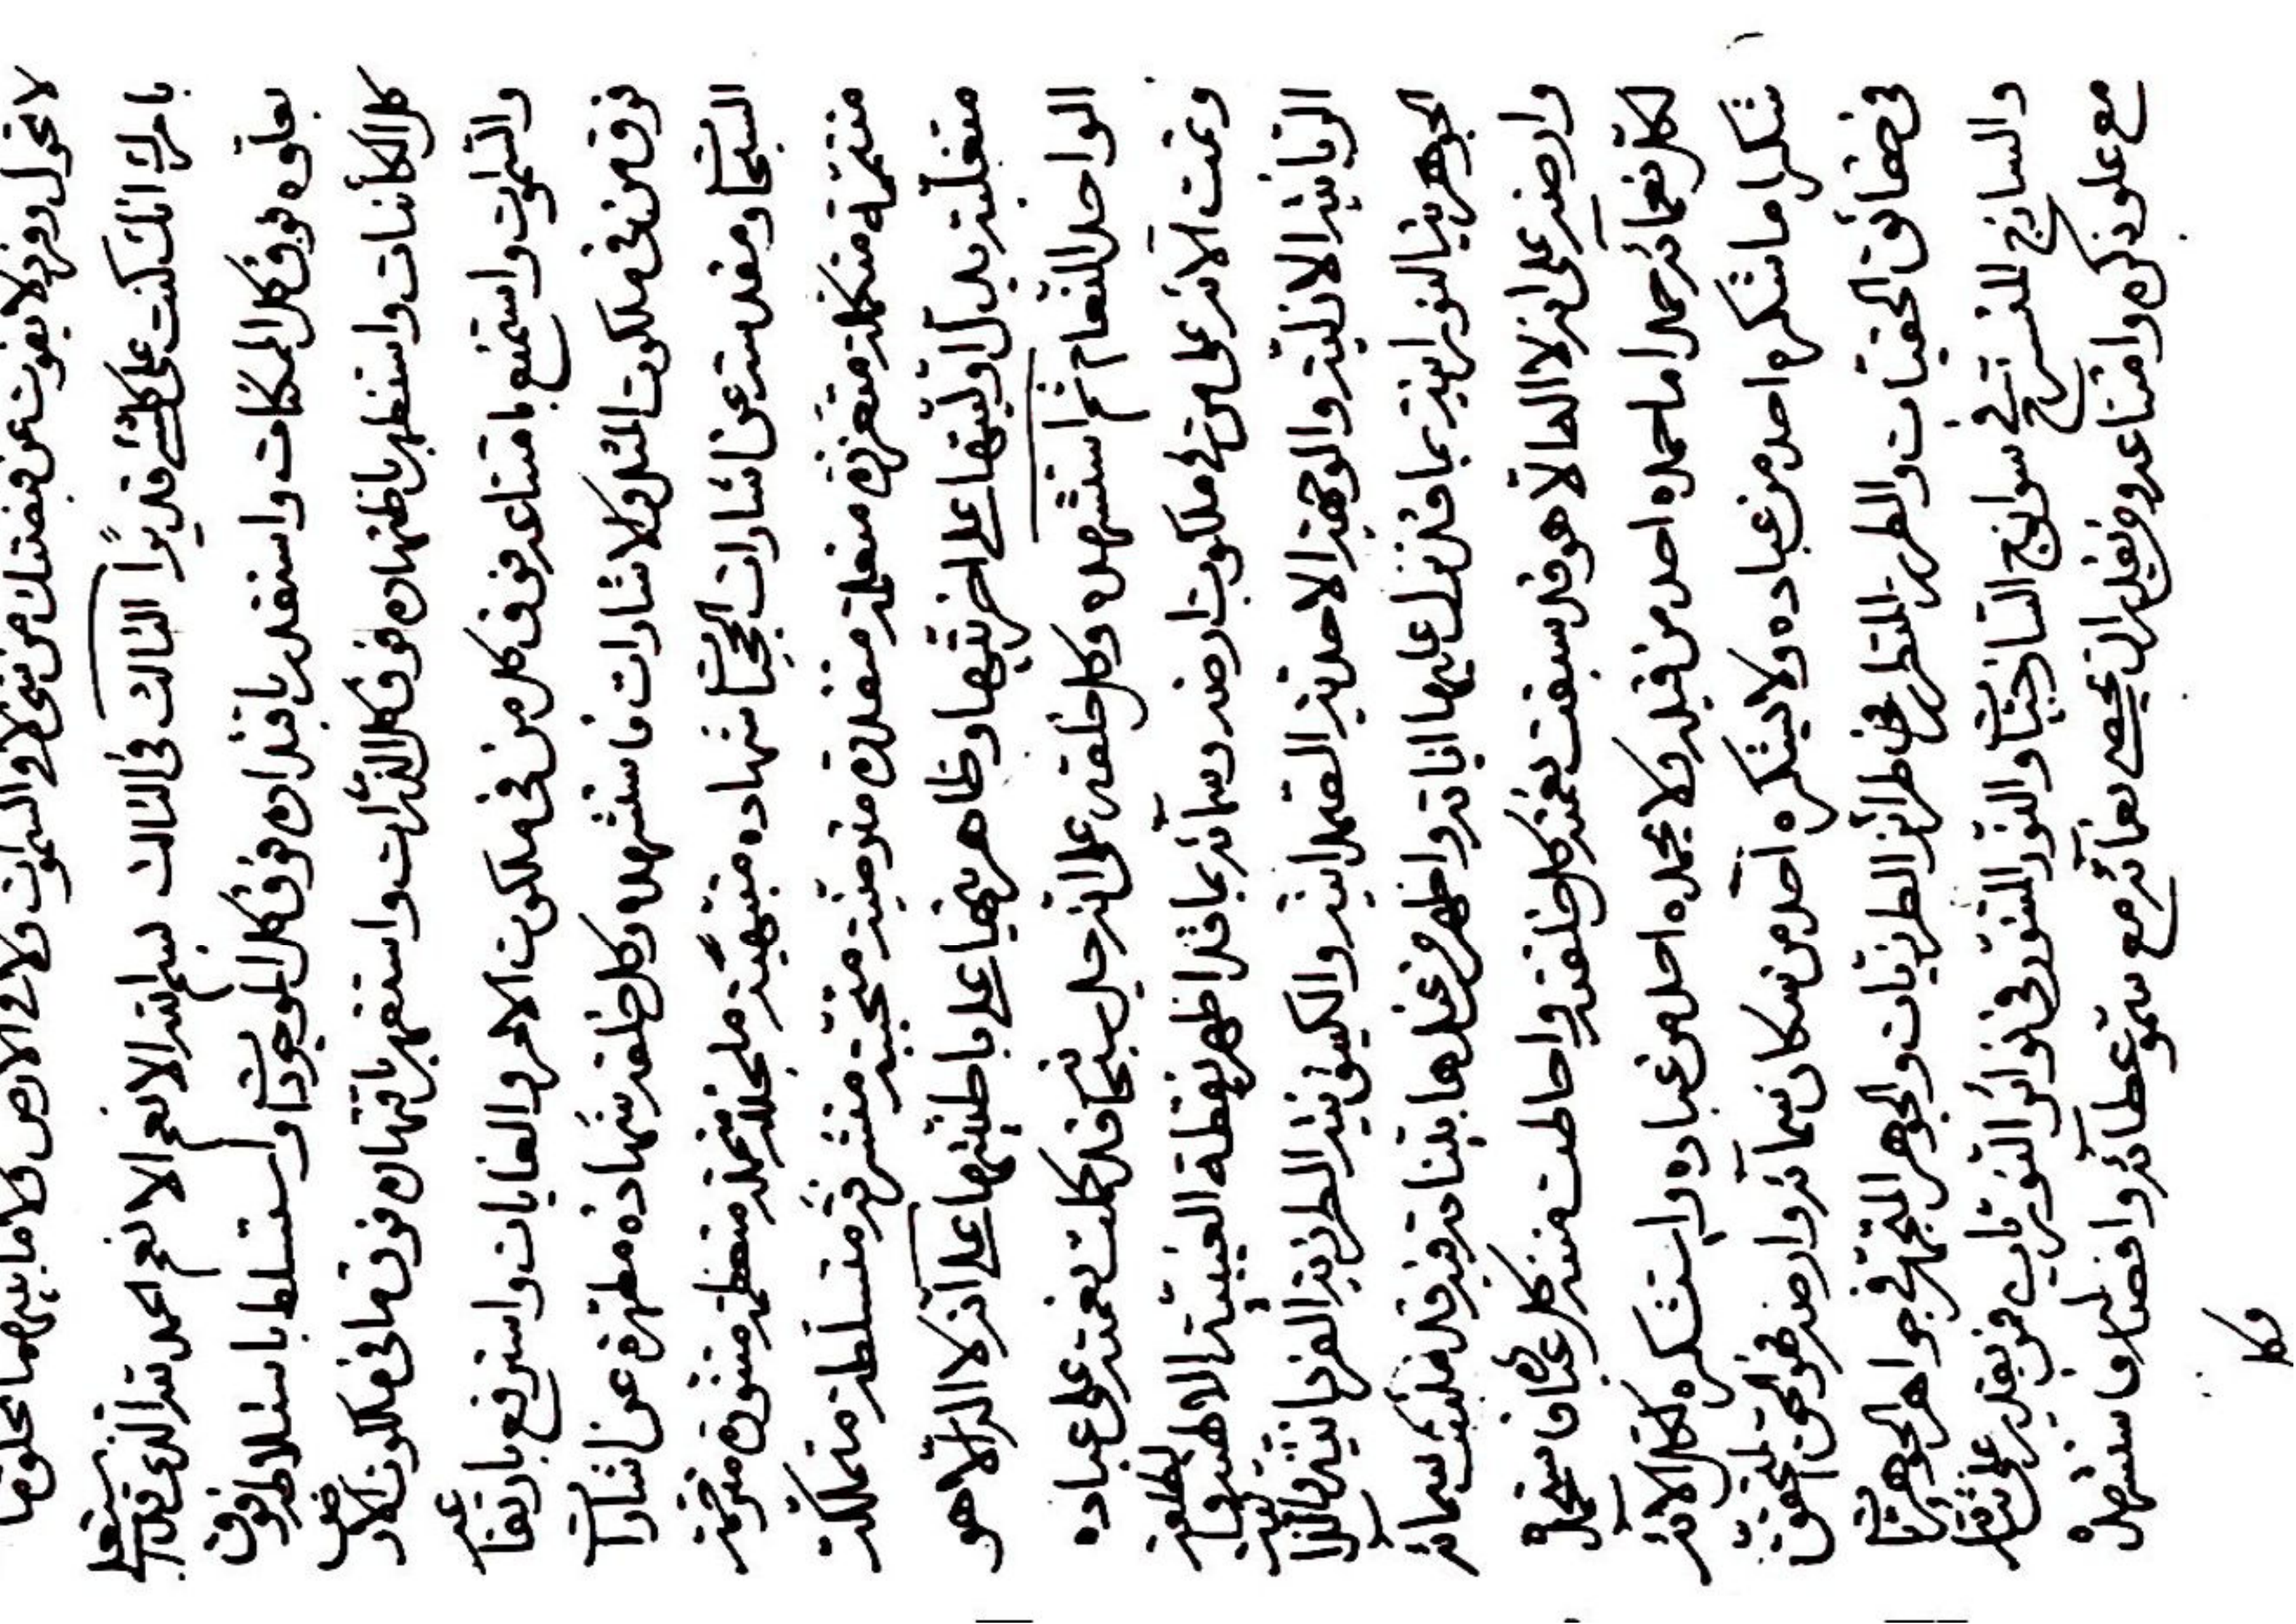 لا تحول وفزد لا يفوت عن قبضتك من شئ لا فى السموات ولا فى الارض ولا ما بينهما تخلق ما
بامرك انك كنت على كلشئ قديرًا الثالث فى الثالث بسم الله الانعم الانعم الحمد لله الذى قد استعلى
بعلوه فوق كل الممكنات واستقدر باقتداره فوق كل الموجودات واستسلط باستلاطه فوق
كل الكائنات واستظهر باظتهاره فوق كل الذرات واستقهر باقتهاره فوق ما فى ملكوت الارض
والسموات واستمنع بامتناعه فوق كل من فى ملكوت الامر والغايات واسترفع بارتفاعه
فوق من فى ملكوت المثل والاشارات فاستشهده وكل خلقه شهادة مطهرة عن اشارات
السبحات ومقدسة عن اشارات الحجبات شهادة مبتهية متجللة متعظمة متنورة مترحمة
متتممة متكملة متعززة متعلمة متقدرة متحببة متشرفة متسلطة متملكة
متعلية يدل اوليتها على اخريتها وظاهريتها على باطنيتها على انه لا اله الا هو
الواحد النعام ثم استشهده وكل خلقه على انه جل سبحانه قد كملت نعمته على عباده
وتمت آلائه على من فى ملكوت ارضه وسمائه بما قد اظهر نقطة الغيبية الالهية
الربانية الازلية والوجهة الاحدية الصمدانية والكينونية الطرزية الفردانية والذاتية
الجوهرية النورانية بما قد نزل عليها اياته واظهر من عندها بيناته فبه قد ملئت سمائه
وارضه على انه لا الها الا هو قد سبقت نعمته كل خلقه واحاطت منته كل عباده فاستحمده
لكل نعمائه حمدا ما حمده احد من قبله ولا يحمده احد من عباده واستشكره لكل الآئه
شكرا ما شكره احد من عباده ولا يشكره احد من سكان سمائه وارضه هو الحق المتحقق
فى حقائق الحقيات والطرز المتطرز فى طرائز الطرزيات والجوهر المتجوهر فى جواهر الجوهريات
والساذج المتسذج فى سواذج الساذجيات والنور المتنور فى نوائر النوريات من يقدر على ثنائه
مع علو ذكره وامتناعه ومن يقدر ان يحصى نعمائه مع سمو عطائه وافضاله فاستشهده
وكل